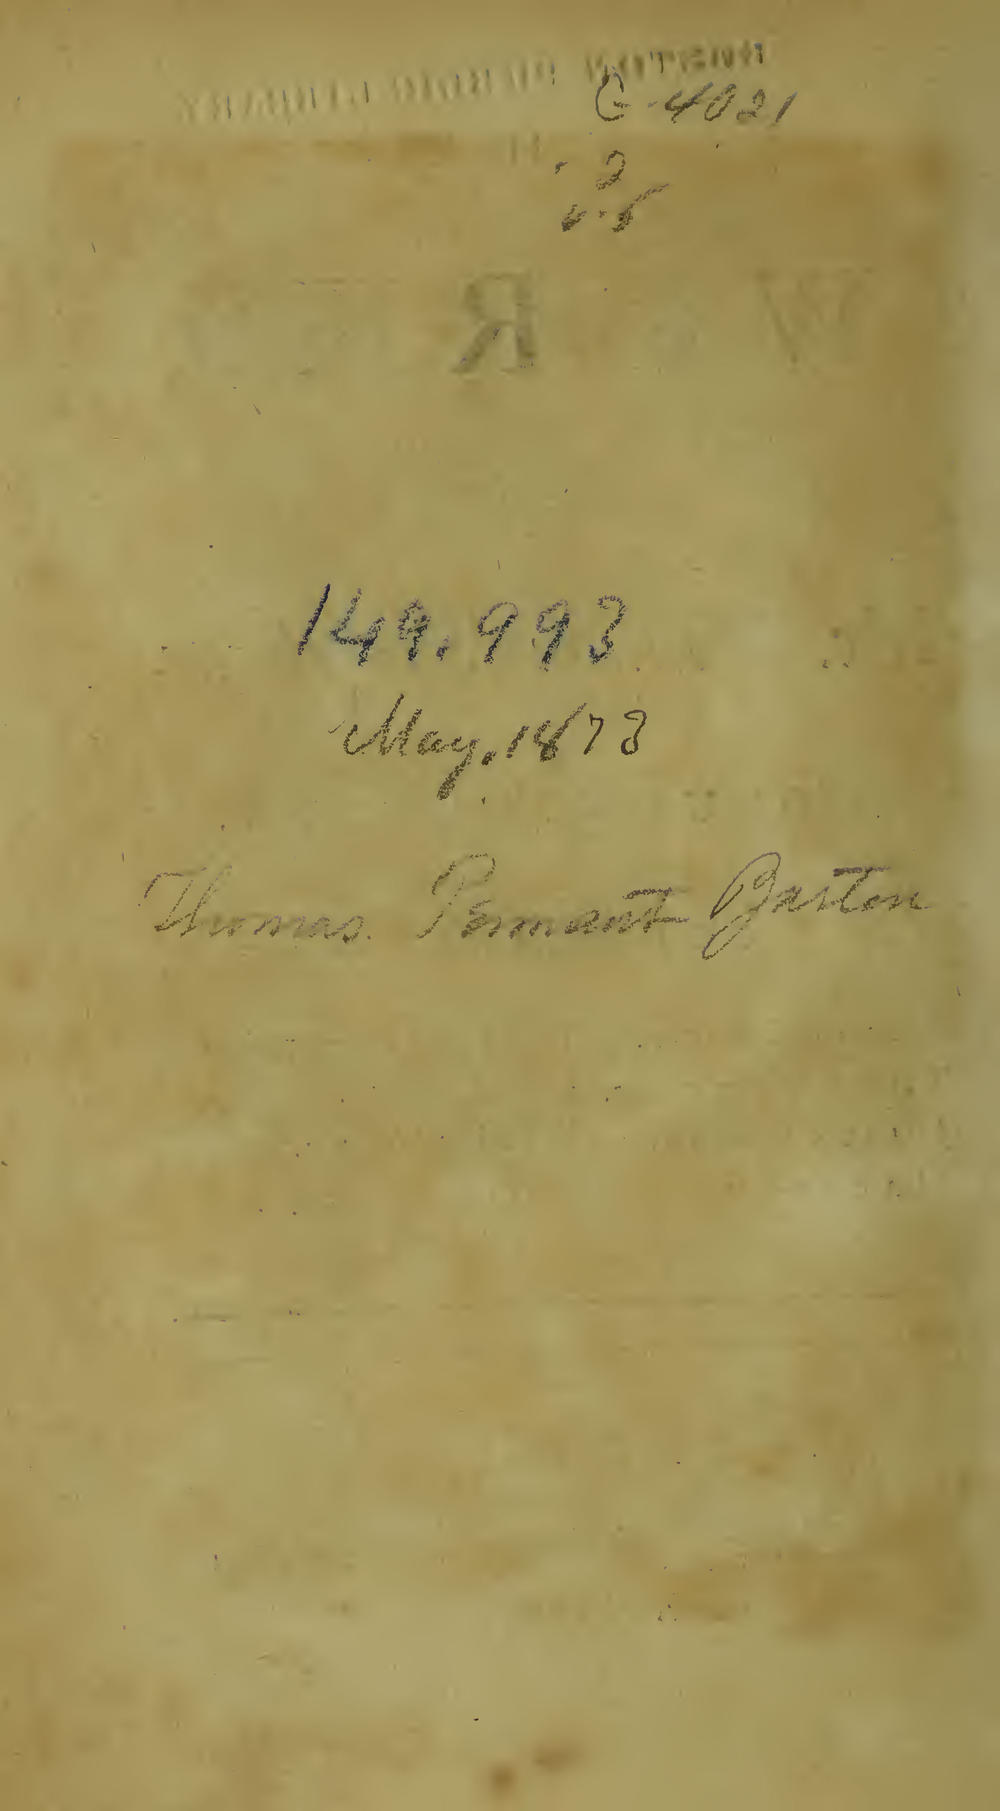 G. 4021
2
v. 8
149.993
May. 1873
Thomas. Pennant Barton